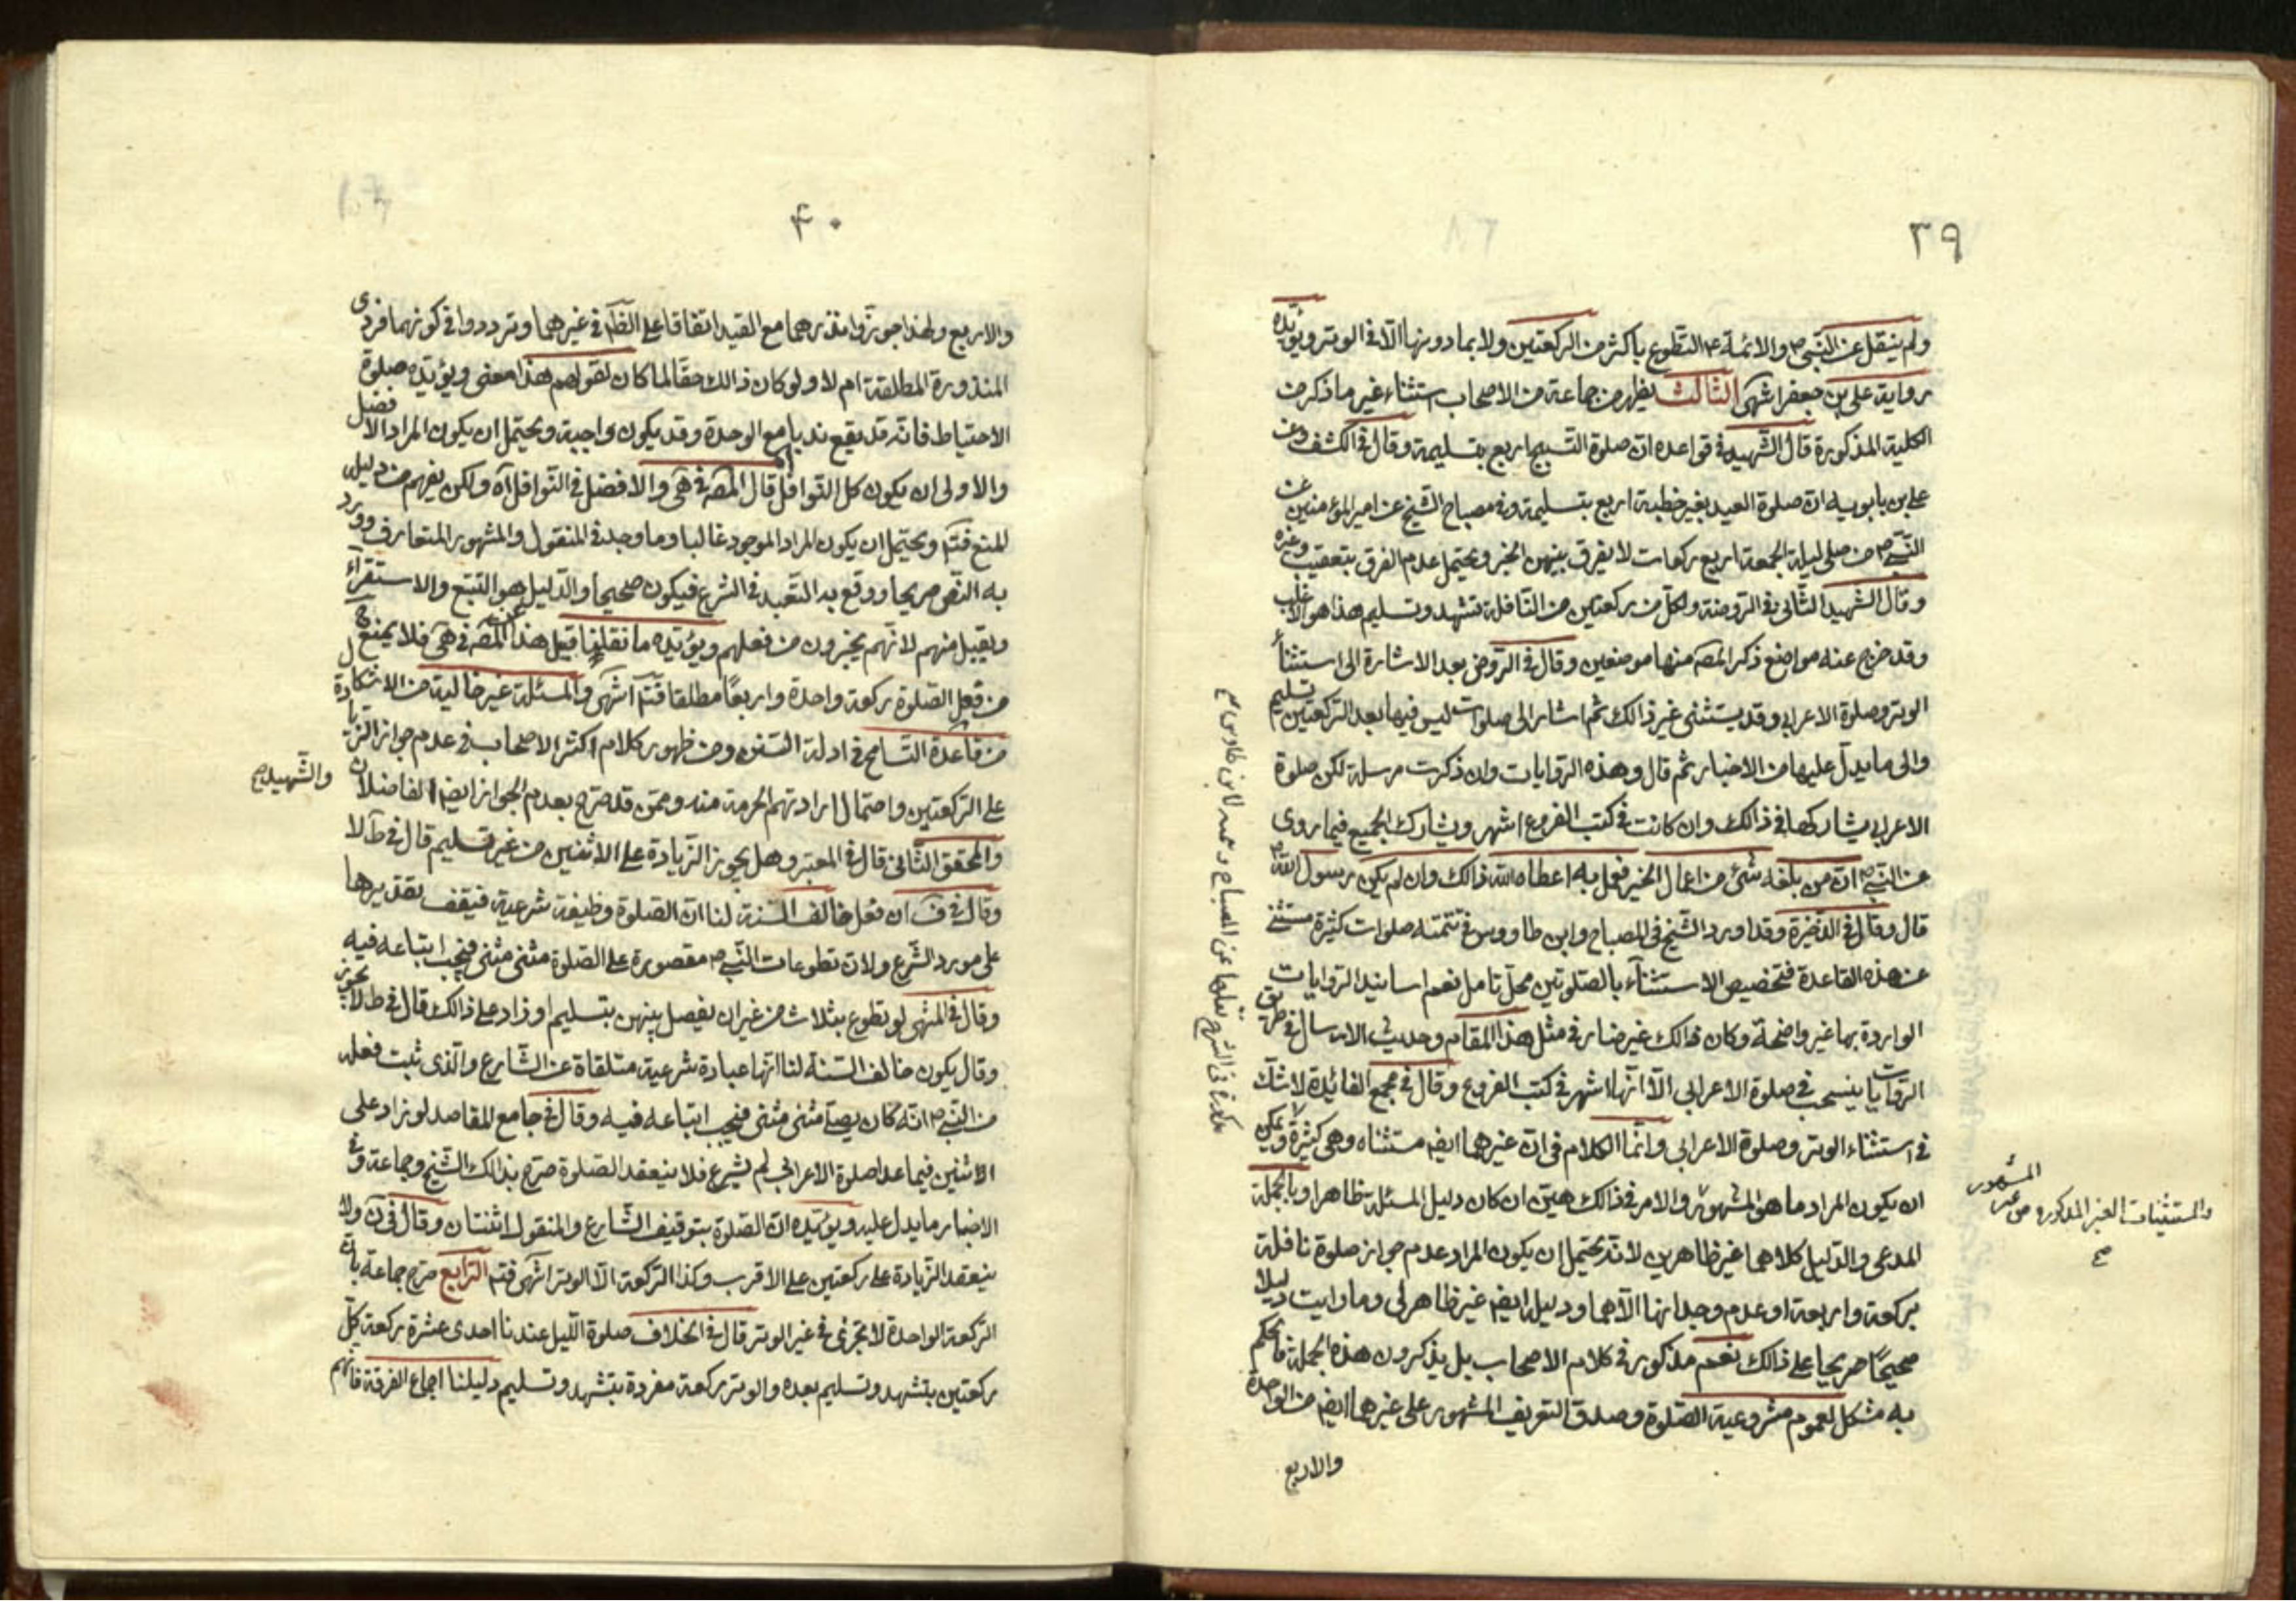 ٣٩
ولم ينقل عن النبي ص والائمة ع التطوع باكثر من الركعتين ولا بما دونها الا في الوتر ويؤيده
رواية علي بن جعفر انتهى الثالث يظهر من جماعة من الاصحاب استثناء غير ما ذكر من
الكلية المذكورة قال الشهيد في قواعده ان صلوة التسبيح اربع بتسليمة وقال في الكشف وعن
علي بن بابويه ان صلوة العيد بغير خطبة اربع بتسليمة وفي مصباح الشيخ عن امير المؤمنين عن
النبي ص من صلى ليلة الجمعة اربع ركعات لا يفرق بينهن الخبر ويحتمل عدم الفرق بتعقيب وغيره
وقال الشهيد الثاني في الروضة ولكل من ركعتين من النافلة تشهد وتسليم هذا هو الاغلب
وقد خرج عنه مواضع ذكر المصه منها موضعين وقال في الروض بعد الاشارة الى استثناء
الوتر وصلوة الاعرابي وقد يستثنى غير ذالك ثم اشار الى صلوات ليس فيها بعد الركعتين تسليم
والى ما يدل عليها من الاخبار ثم قال وهذه الروايات وان ذكرت مرسلة لكن صلوة
الاعرابي يشاركها في ذالك وان كانت في كتب الفروع اشهر ويشارك الجميع فيما روى
عن النبي ص ان من بلغه شئ من اعمال الخير فعمل به اعطاه الله ذالك وان لم يكن رسول الله ص
قال وقال في الذخيرة وقد اورد الشيخ في المصباح وابن طاووس في تتمته صلوات كثيرة مستثنى
عن هذه القاعدة فتخصيص الاستثناء بالصلوتين محل تامل نعم اسانيد الروايات
الواردة بها غير واضحة وكان ذالك غير ضار في مثل هذا المقام وحديث الارسال في طريق
الروايات ينسحب في صلوة الاعرابي الا انها اشهر في كتب الفروع وقال في مجمع الفائدة لا شك
في استثناء الوتر وصلوة الاعرابي وانما الكلام في ان غيرهما ايضم مستثناه وهي كثيرة ويمكن
ان يكون المراد ما هو المشهور والامر في ذالك هين ان كان دليل المسئلة ظاهرا وبالجملة
المدعى والدليل كلاهما غير ظاهرين لانه يحتمل ان يكون المراد عدم جواز صلوة نافلة
بركعة واربعة او عدم وجدانها الا هما ودليله ايضم غير ظاهر لي وما رايت دليلا
صحيحا صريحا على ذالك نعم مذكور في كلام الاصحاب بل يذكرون هذه الجملة فالحكم
به مشكل لعموم مشروعية الصلوة وصدق التعريف المشهور على غيرهما ايضم من الواحدة
والاربع
المشهور
والمستثنيات الغير المذكوره من غير
صح
٤٠
والاربع ولهذا جوزوا نذرهما مع القيد اتفاقا على الظم في غيرهما وترددوا في كونهما فردى
المنذورة المطلقة ام لا ولو كان ذالك حقا لما كان لقولهم هذا معنى ويؤيده صلوة
الاحتياط فانه قد يقع ندبا مع الوحدة وقد يكون واجبة ويحتمل ان يكون المراد الافضل
والاولى ان يكون كل النوافل قال المصه في هى والافضل في النوافل اه ولكن يفهم من دليله
المنع فتم ويحتمل ان يكون المراد الموجود غالبا وما وجد في المنقول والمشهور المتعارف وورد
به النص صريحا ووقع به التعبد في الشرع فيكون صحيحا والدليل هو التتبع والاستقراء
ويقبل منهم لانهم يخبرون من فعلهم ويؤيده ما نقلنا قبيل هذا عن المصه في هى فلا يمنع ح
من فعل الصلوة ركعة واحدة واربعا مطلقا فتم انتهى والمسئلة غير خالية من الاشكال
من قاعدة التسامح في ادلة السنن ومن ظهور كلام اكثر الاصحاب في عدم جواز الزيادة
على الركعتين واحتمال ارادتهم الحرمة منه وممن قد صرح بعدم الجواز ايضم الفاضلان
والشهيد صح
والمحقق الثاني قال في المعتبر وهل يجوز الزيادة على الاثنين من غير تسليم قال في ط لا
وقال في ف ان فعل خالف السنة لنا ان الصلوة وظيفة شرعية فيقف تقديرها
على مورد الشرع ولان تطوعات النبي ص مقصورة على الصلوة مثنى مثنى فيجب اتباعه فيه
وقال في المنتهى لو تطوع بثلاث من غير ان يفصل بينهن بتسليم او زاد على ذالك قال في ط لا يجوز
وقال يكون خالف السنة لنا انها عبادة شرعية متلقاة عن الشارع والذى ثبت فعله
من النبي ص انه كان يصلي مثنى مثنى فيجب اتباعه فيه وقال في جامع المقاصد لو زاد على
الاثنين فيما عدا صلوة الاعرابي لم يشرع فلا ينعقد الصلوة صرح بذالك الشيخ وجماعة وفي
الاخبار ما يدل عليه ويؤيده ان الصلوة بتوقيف الشارع والمنقول اثنتان وقال في ن ولا
ينعقد الزيادة على ركعتين على الاقرب وكذا الركعة الا الوتر انتهى فتم الرابع صرح جماعة بان
الركعة الواحدة لا تجزى في غير الوتر قال في الخلاف صلوة الليل عندنا احدى عشرة ركعة كل
ركعتين بتشهد وتسليم بعده والوتر ركعة مفردة بتشهد وتسليم دليلنا اجماع الفرقة فانهم